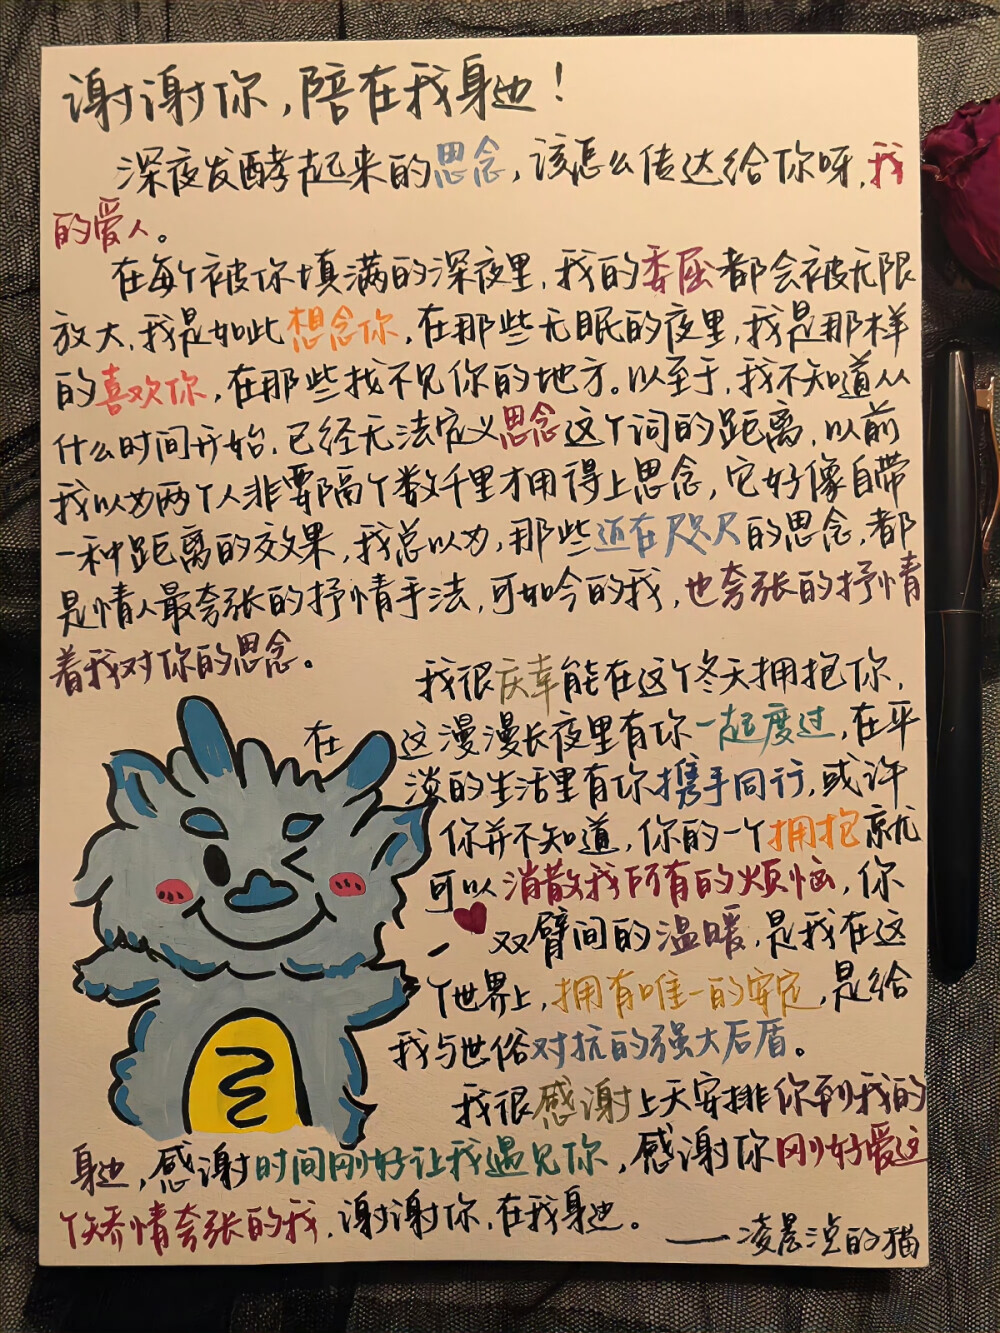 谢谢你，陪在我身边！
深夜发酵起来的思念，该怎么传达给你呀，我
的爱人。
在每个被你填满的深夜里，我的委屈都会被无限
放大，我是如此想念你，在那些无眠的夜里，我是那样
的喜欢你，在那些找不见你的地方。以至于，我不知道从
什么时间开始，已经无法定义思念这个词的距离，以前
我以为两个人非要隔个数千里才用得上思念，它好像自带
一种距离的效果，我总以为，那些近在咫尺的思念，都
是情人最夸张的抒情手法，可如今的我，也夸张的抒情
着我对你的思念。
我很庆幸能在这个冬天拥抱你，
在这漫漫长夜里有你一起度过，在平
淡的生活里有你携手同行，或许
你并不知道，你的一个拥抱就
可以消散我所有的烦恼，你
双臂间的温暖，是我在这
个世界上，拥有唯一的安定，是给
我与世俗对抗的强大后盾。
我很感谢上天安排你到我的
身边，感谢时间刚好让我遇见你，感谢你刚好爱这
个矫情夸张的我，谢谢你，在我身边。
——凌晨淀的猫